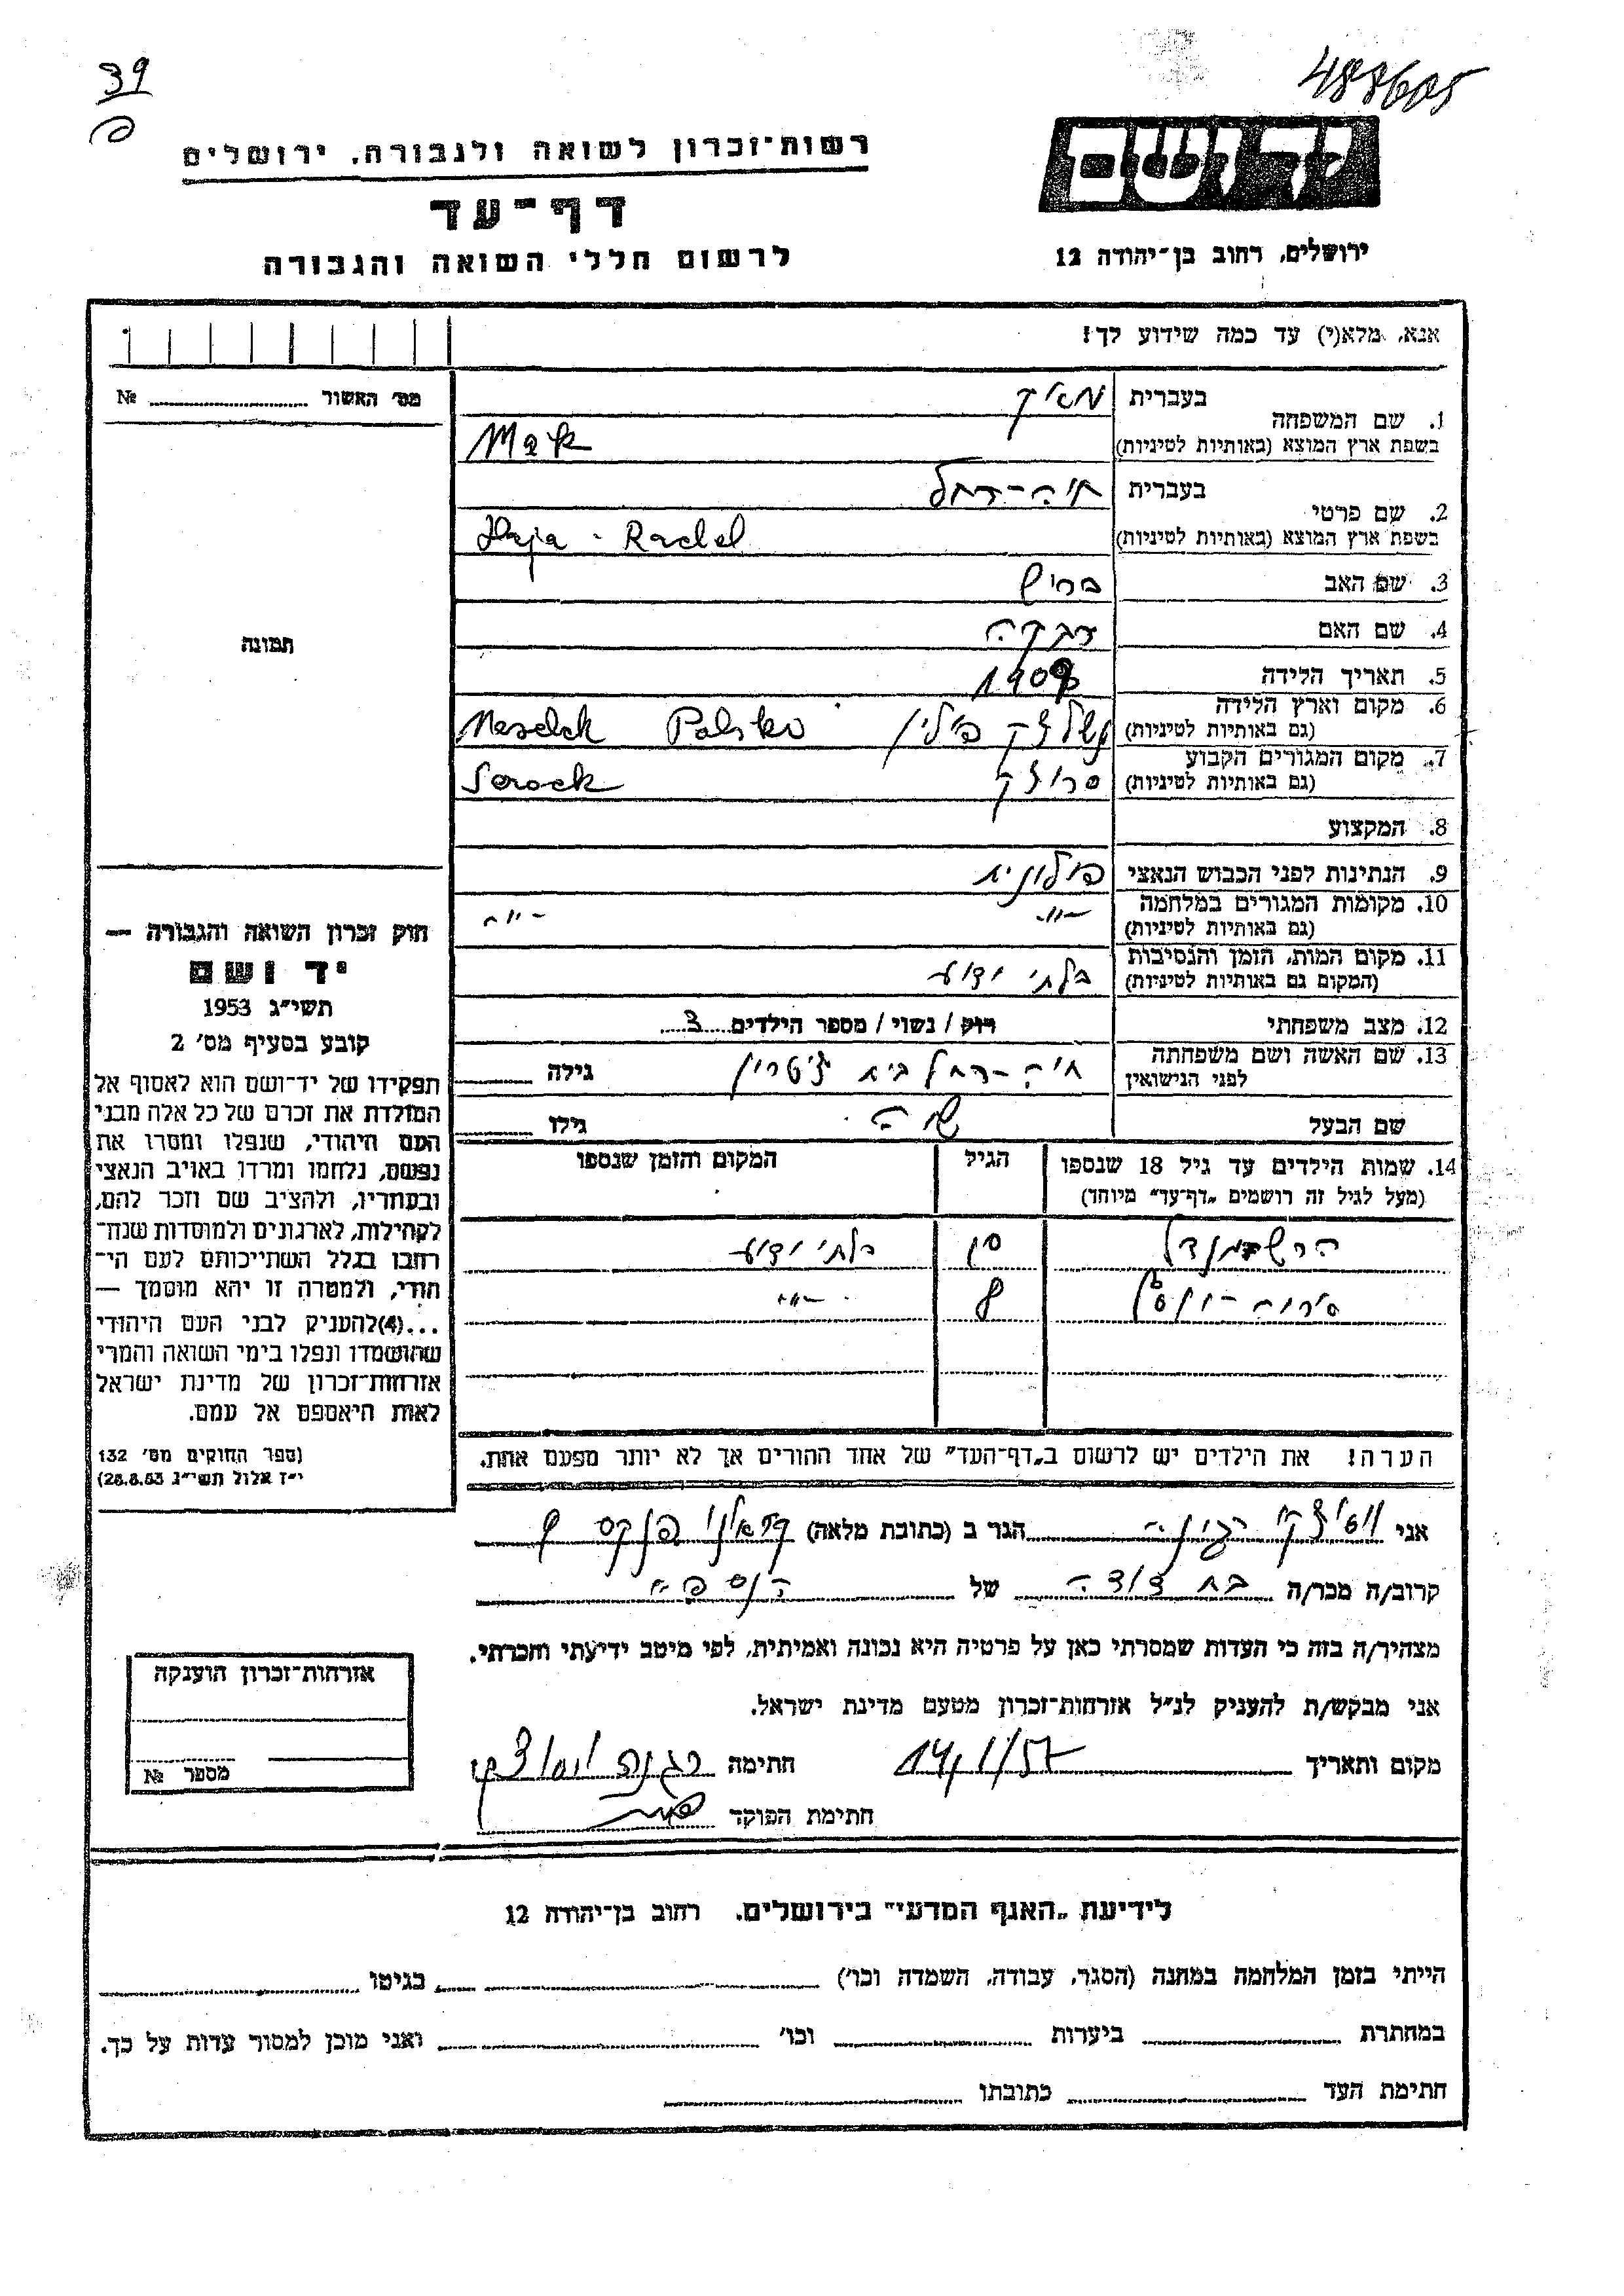 39
488605
רשות־זכרון לשואה ולגבורה, ירושלים
יד ושם
דף־עד
לרשום חללי השואה והגבורה
ירושלים, רחוב בן־יהודה 12
אנא, מלא(י) עד כמה שידוע לך!
מס׳ האשור № ........
1. שם המשפחה בעברית מאיק
בשפת ארץ המוצא (באותיות לטיניות) Majk
2. שם פרטי בעברית חיה-רחל
בשפת ארץ המוצא (באותיות לטיניות) Haja - Rachel
3. שם האב בריש
4. שם האם רבקה
5. תאריך הלידה
6. מקום וארץ הלידה (גם באותיות לטיניות) פולין Polsko
7. מקום המגורים הקבוע (גם באותיות לטיניות) סרוצק Serock
8. המקצוע
9. הנתינות לפני הכבוש הנאצי פולונית
10. מקומות המגורים במלחמה (גם באותיות לטיניות) -"- -"-
11. מקום המות, הזמן והנסיבות (המקום גם באותיות לטיניות) בלתי ידוע
12. מצב משפחתי רוק / נשוי / מספר הילדים 3
13. שם האשה ושם משפחתה לפני הנישואין חיה-רחל בית ציטרין גילה
שם הבעל גילו
14. שמות הילדים עד גיל 18 שנספו הגיל המקום והזמן שנספו
(מעל לגיל זה רושמים „דף־עד״ מיוחד)
בלתי ידוע
-"-
הערה! את הילדים יש לרשום ב„דף־העד״ של אחד ההורים אך לא יותר מפעם אחת.
אני הגר ב (כתובת מלאה) קראלי פנקס
קרוב/ה מכר/ה בת דודה של הנספית
מצהיר/ה בזה כי העדות שמסרתי כאן על פרטיה היא נכונה ואמיתית, לפי מיטב ידיעתי והכרתי.
אני מבקש/ת להעניק לנ״ל אזרחות־זכרון מטעם מדינת ישראל.
מקום ותאריך 14/1/57 חתימה
חתימת הפוקד
תמונה
חוק זכרון השואה והגבורה —
יד ושם
תשי״ג 1953
קובע בסעיף מס׳ 2
תפקידו של יד־ושם הוא לאסוף אל
המולדת את זכרם של כל אלה מבני
העם היהודי, שנפלו ומסרו את
נפשם, נלחמו ומרדו באויב הנאצי
ובעוזריו, ולהציב שם וזכר להם,
לקהילות, לארגונים ולמוסדות שנח־
רחבו בגלל השתייכותם לעם הי־
הודי, ולמטרה זו יהא מוסמך —
...(4) להעניק לבני העם היהודי
שהושמדו ונפלו בימי השואה והמרי
אזרחות־זכרון של מדינת ישראל
לאות היאספם אל עמם.
(ספר החוקים מס׳ 132
י״ז אלול תשי״ג 28.8.53)
אזרחות־זכרון הוענקה
מספר №
לידיעת „האגף המדעי״ בירושלים, רחוב בן־יהודה 12
הייתי בזמן המלחמה במחנה (הסגר, עבודה, השמדה וכו׳) ........ בגיטו ........
במחתרת ........ ביערות ........ וכו׳ ........ ואני מוכן למסור עדות על כך.
חתימת העד ........ כתובתו ........